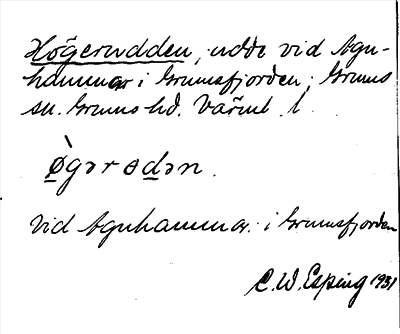 Högerudden, udde vid Agn-
hammar i Grumsfjorden, Grums
sn. Grums hd. Värml. l.
ø̀gərɵdən.
Vid Agnhammar i Grumsfjorden
C.W. Esping 1931